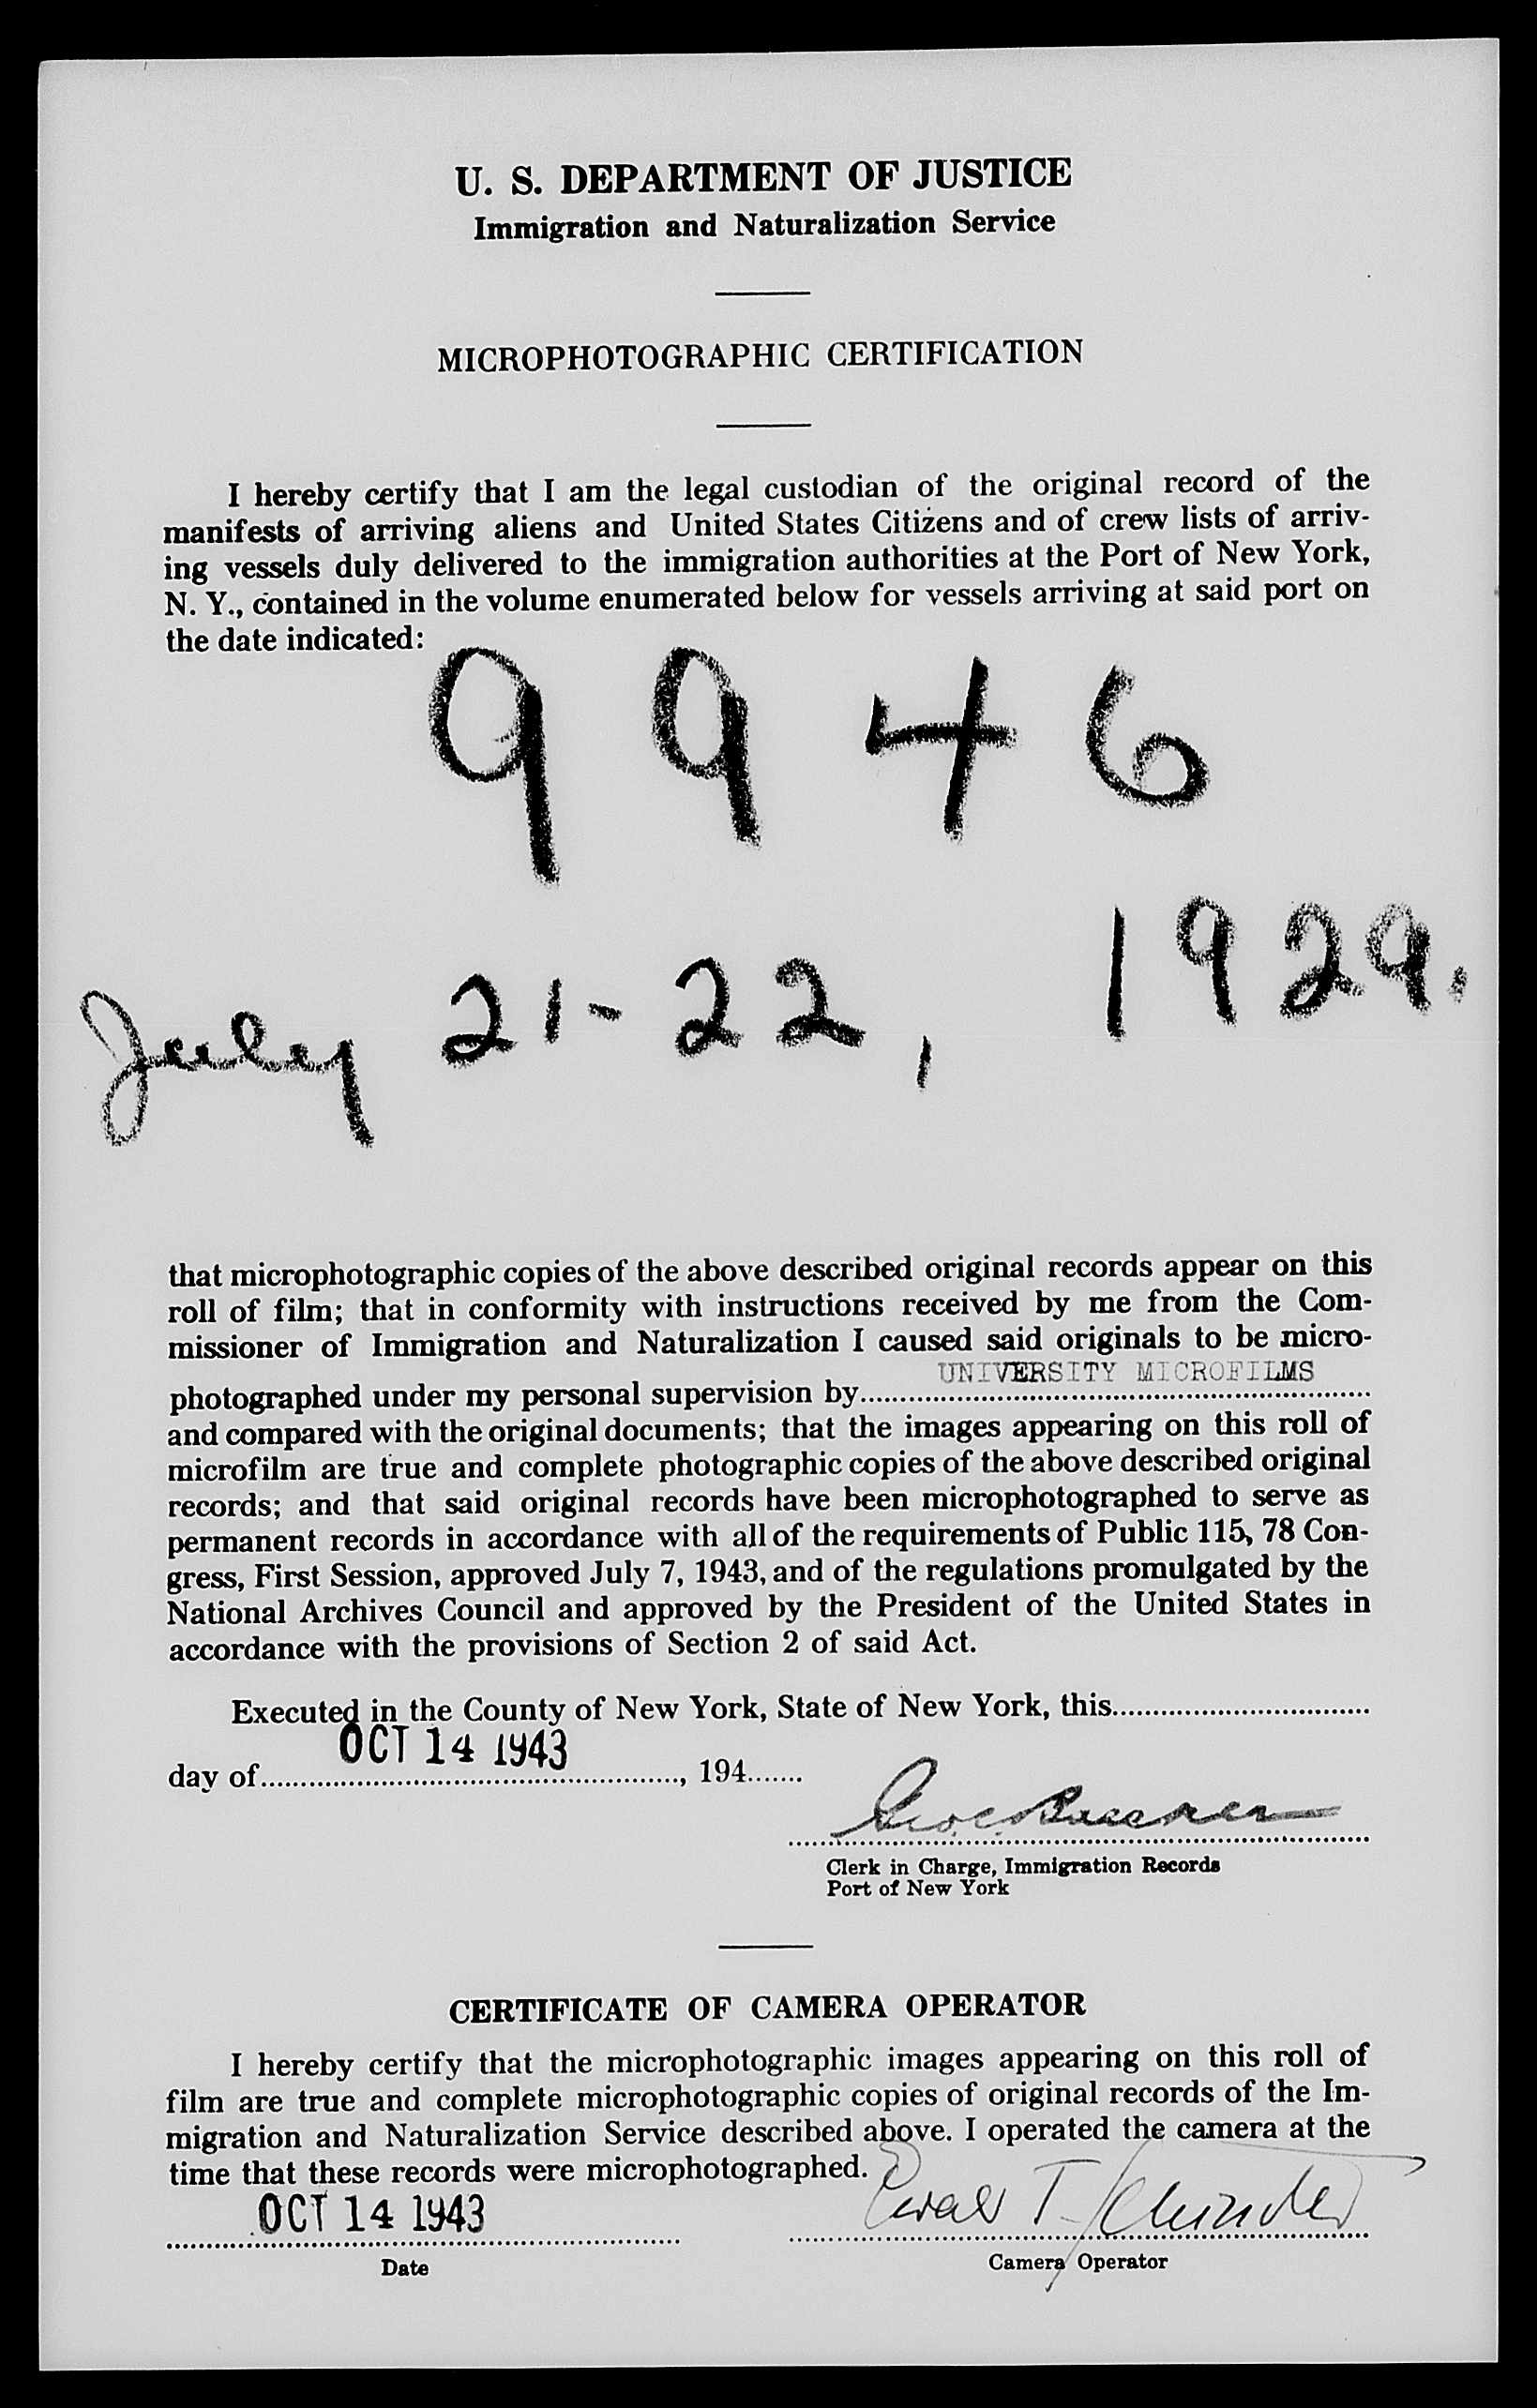 U. S. DEPARTMENT OF JUSTICE
Immigration and Naturalization Service
MICROPHOTOGRAPHIC CERTIFICATION
I hereby certify that I am the legal custodian of the original record of the
manifests of arriving aliens and United States Citizens and of crew lists of arriv-
ing vessels duly delivered to the immigration authorities at the Port of New York,
N. Y., contained in the volume enumerated below for vessels arriving at said port on
the date indicated:
9946
July 21-22, 1929.
that microphotographic copies of the above described original records appear on this
roll of film; that in conformity with instructions received by me from the Com-
missioner of Immigration and Naturalization I caused said originals to be micro-
UNIVERSITY MICROFILMS
photographed under my personal supervision by
and compared with the original documents; that the images appearing on this roll of
microfilm are true and complete photographic copies of the above described original
records; and that said original records have been microphotographed to serve as
permanent records in accordance with all of the requirements of Public 115, 78 Con-
gress, First Session, approved July 7, 1943, and of the regulations promulgated by the
National Archives Council and approved by the President of the United States in
accordance with the provisions of Section 2 of said Act.
Executed in the County of New York, State of New York, this
OCT 14 1943
day of, 194
Clerk in Charge, Immigration Records
Port of New York
CERTIFICATE OF CAMERA OPERATOR
I hereby certify that the microphotographic images appearing on this roll of
film are true and complete microphotographic copies of original records of the Im-
migration and Naturalization Service described above. I operated the camera at the
time that these records were microphotographed.
OCT 14 1943
Date
Camera Operator